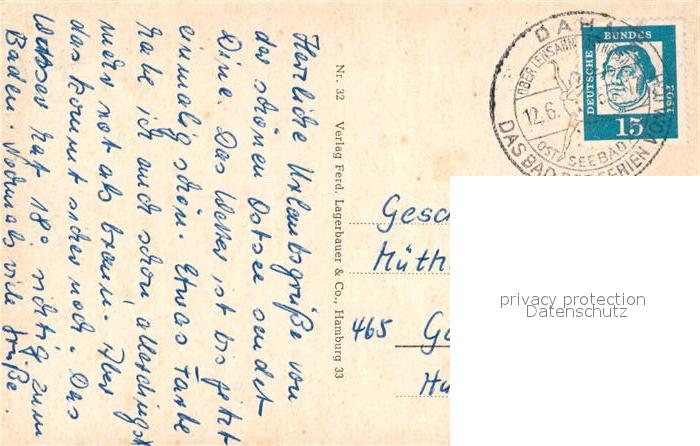 Herzliche Urlaubsgrüße von
der schönen Ostsee sendet
Dine. Das Wetter ist bis jetzt
einmalig schön. Etwas Farbe
habe ich auch schon, allerdings
mehr rot als braun. Aber
das kommt sicher noch. Das
Wasser hat 18° richtig zum
Baden. Nochmals viele Grüße.
Nr. 32 Verlag Ferd. Lagerbauer & Co., Hamburg 33
DAH
ÜBER LENSAHN
12.6.
OSTSEEBAD
DAS BAD FERIEN VON
DEUTSCHE BUNDES
15
Gesch
Müth
465 Ge
Hu
privacy protection
Datenschutz